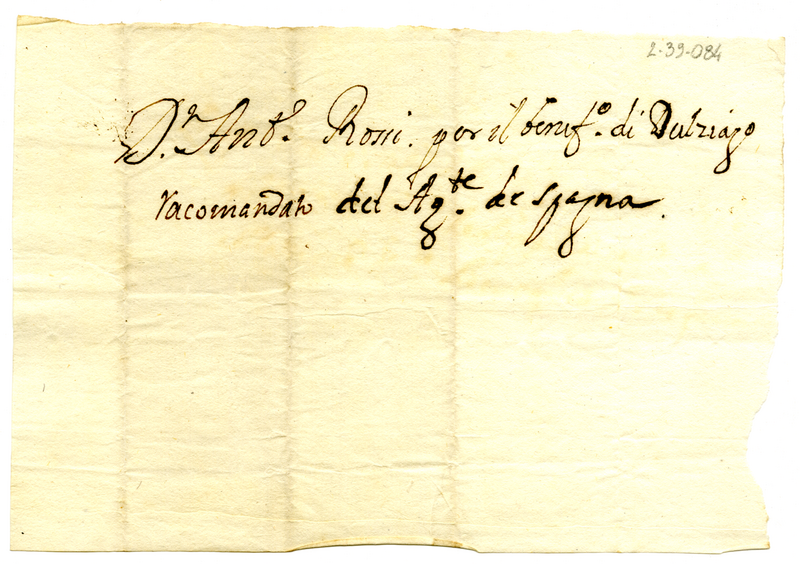 2-39-084
D.n Ant.o Rossi. per il benef.o di Dulziago
racomandato del Ag.te de Spagna.